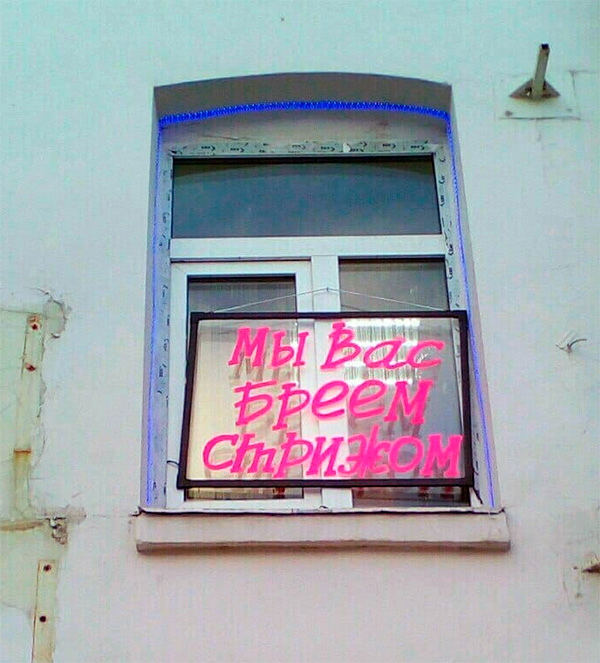 Мы Вас
бреем
стрижом